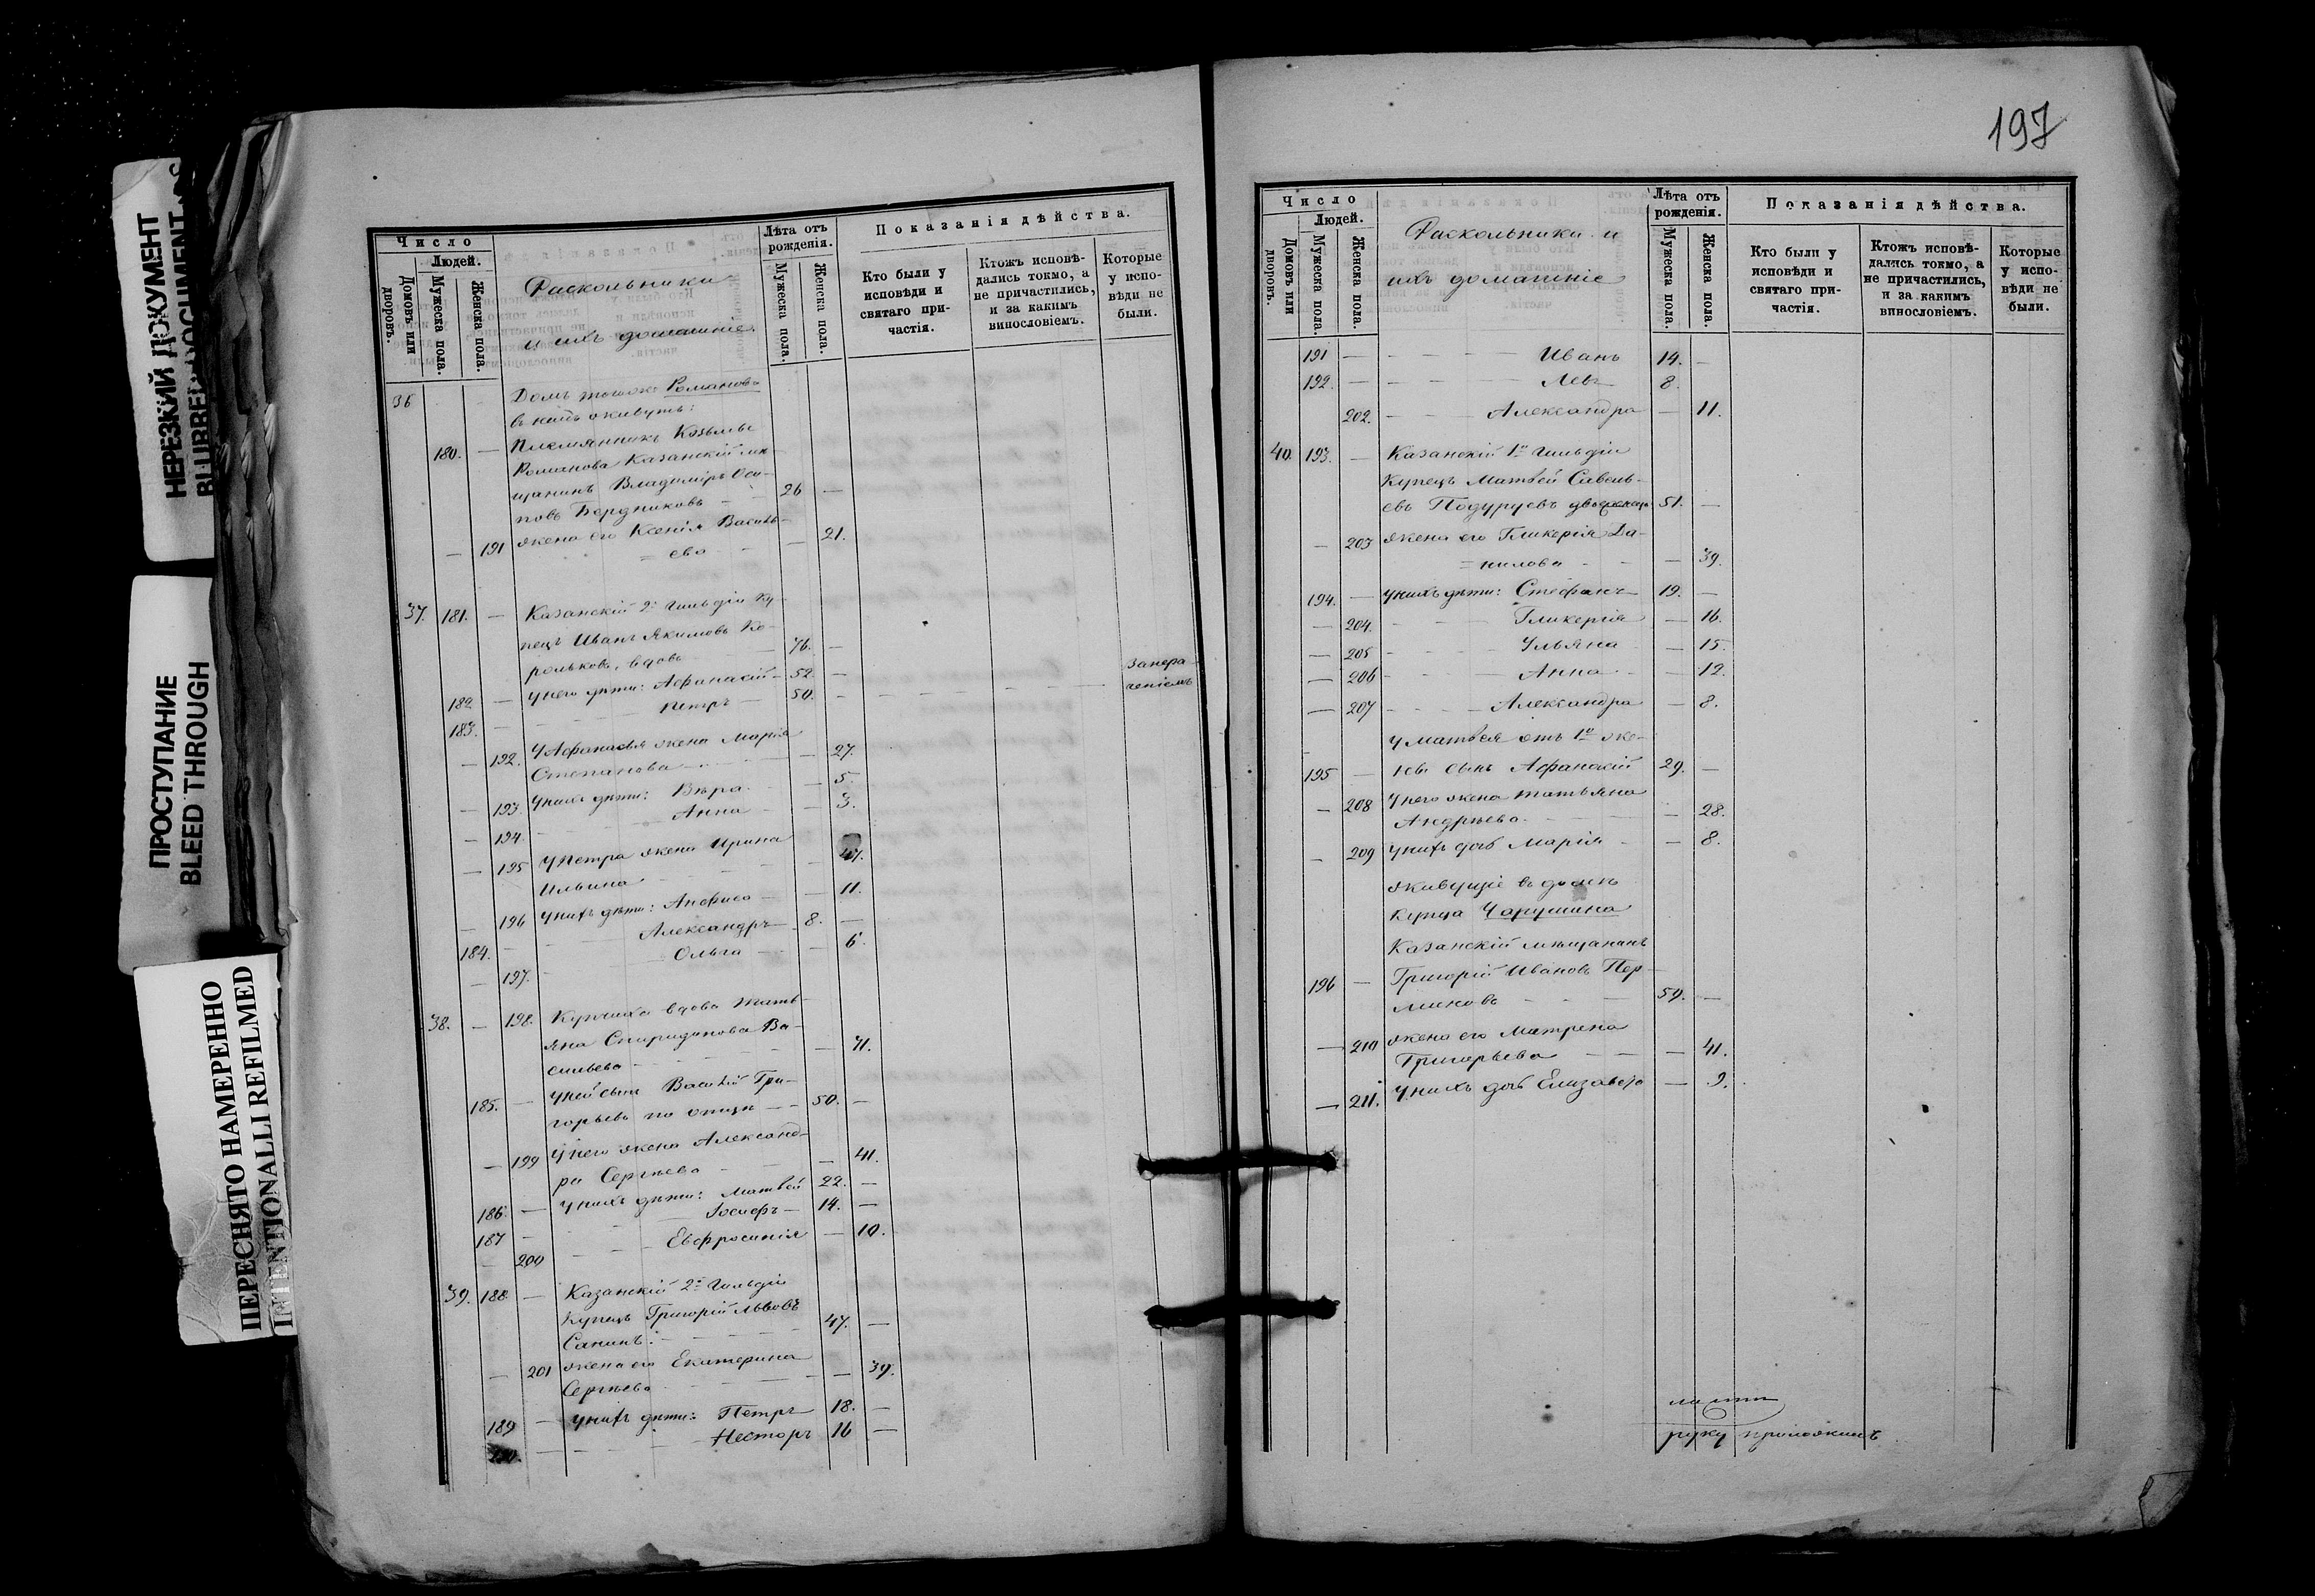 НЕРЕЗКИЙ ДОКУМЕНТ
BLURRED DOCUMENT
ПРОСТУПАНИЕ
BLEED THROUGH
ПЕРЕСНЯТО НАМЕРЕННО
INTENTIONALLI REFILMED
Число
Людей.
Домовъ или дворовъ.
Мужеска пола.
Женска пола.
Раскольники
и ихъ домашніе
Лѣта отъ рожденія.
Мужеска пола.
Женска пола.
Показанія дѣйства.
Кто были у исповѣди и святаго причастія.
Ктожъ исповѣдались токмо, а не причастились, и за какимъ винословіемъ.
Которые у исповѣди не были.
36 Домъ Романова
въ немъ живутъ:
180. — Племянникъ Козьмы
Романова Казанскій мѣ-
щанинъ Владиміръ Оси-
повъ Бердниковъ — 26 —
— 191 жена его Ксенія Василь-
= ева — — 21.
37. 181. — Казанскій 2й Гильдіи Ку-
пецъ Иванъ Якимовъ Ко-
рольковъ, вдовъ 76. —
182 — У него дѣти: Афанасій — 52. —
183. — Петръ — 50. — за пера-
ченіемъ
— 192. У Афанасья жена Марія
Степанова — — 27.
— 193. У нихъ дѣти: Вѣра — 5.
— 194. — Анна — 3.
— 195 У Петра жена Ирина
Ильина — 47.
— 196 У нихъ дѣти: Анфиса — — 11.
184. — Александръ — 8. —
— 197. — Ольга — 6.
38. — 198. Купчиха вдова Тать-
яна Спиридонова Ва-
сильева — — 71.
185. — У ней сынъ Василій Гри-
горьевъ по отцѣ — 50. —
— 199 У него жена Александ-
ра Сергѣева — — 41.
186. — У нихъ дѣти: Матвей 22. —
187 — Іосифъ — 14. —
— 200 — Евфросинія — 10.
39. 188 — Казанскій 2й Гильдіи
Купецъ Григорій Львовъ
Санинъ: — 47. —
— 201 жена его Екатерина
Сергѣева — — 39.
189 — У нихъ дѣти: Петръ 18. —
— Несторъ 16 —
197
Число
Людей.
Домовъ или дворовъ.
Мужеска пола.
Женска пола.
Раскольники и
ихъ домашніе
Лѣта отъ рожденія.
Мужеска пола.
Женска пола.
Показанія дѣйства.
Кто были у исповѣди и святаго причастія.
Ктожъ исповѣдались токмо, а не причастились, и за какимъ винословіемъ.
Которые у исповѣди не были.
191 — Иванъ 14. —
192. — Левъ 8.
202. — Александра — 11.
40. 193. — Казанскій 1й Гильдіи
Купецъ Матвей Савель-
евъ Подуруевъ 51. —
— 203 жена его Гликерія Да-
= нилова — — 39.
194. — У нихъ дѣти: Стефанъ 19. —
— 204. — Гликерія — 16.
— 205 — Ульяна — 15.
— 206 — Анна — 12.
— 207 — Александра — 8.
У Матвея отъ 1й же-
195 — ны сынъ Афанасій 29. —
— 208 У него жена Татьяна
Андрѣева — — 28.
— 209 У нихъ дочь Марія — 8.
живущіе въ домѣ
купца Чарушина
Казанскій мѣщанинъ
196 — Григорій Ивановъ Пер-
миновъ — 59. —
— 210 жена его Матрена
Григорьева — — 41.
— 211. У нихъ дочь Елизавета — 9.
руку приложилъ